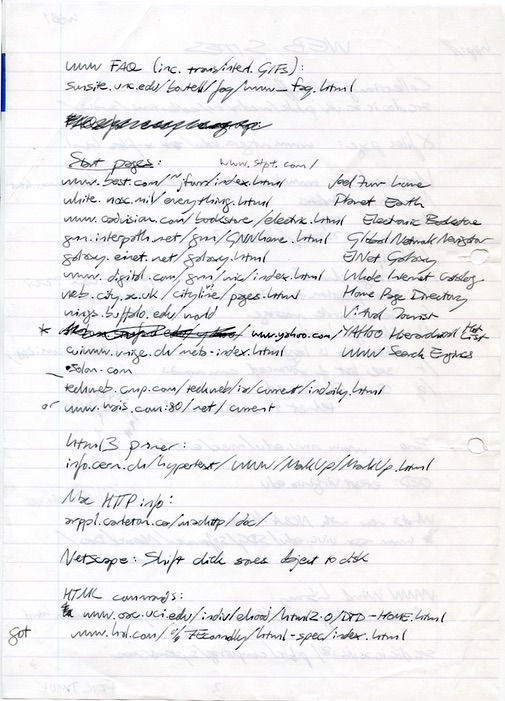 WWW FAQ (inc. trans/interl. GIFs):
sunsite.unc.edu/boutell/faq/www_faq.html
Start pages: www.stpt.com/
www.best.com/~jfurr/index.html Joel Furr Home
white.nosc.mil/everything.html Planet Earth
www.codvision.com/bookstore/electric.html Electronic Bookstore
gnn.interpath.net/gnn/GNNhome.html Global Network Navigator
galaxy.einet.net/galaxy.html EINet Galaxy
www.digital.com/gnn/wic/index.html Whole Internet Catalog
web.city.ac.uk/cityline/pages.html Home Page Directory
wings.buffalo.edu/world Virtual Tourist
* www.yahoo.com/ YAHOO Hierarchical Hot List
cuiwww.unige.ch/meta-index.html WWW Search Engines
solan.com
techweb.cmp.com/techweb/ia/current/indsity.html
or www.wais.com:80/net/current
html3 primer:
info.cern.ch/hypertext/WWW/MarkUp/MarkUp.html
Mac HTTP info:
arppl.carleton.ca/machttp/doc/
Netscape: Shift click saves object to disk
HTML commands:
www.oac.uci.edu/indiv/ehood/html2.0/DTD-HOME.html
got www.hal.com/%7Econnolly/html-spec/index.html